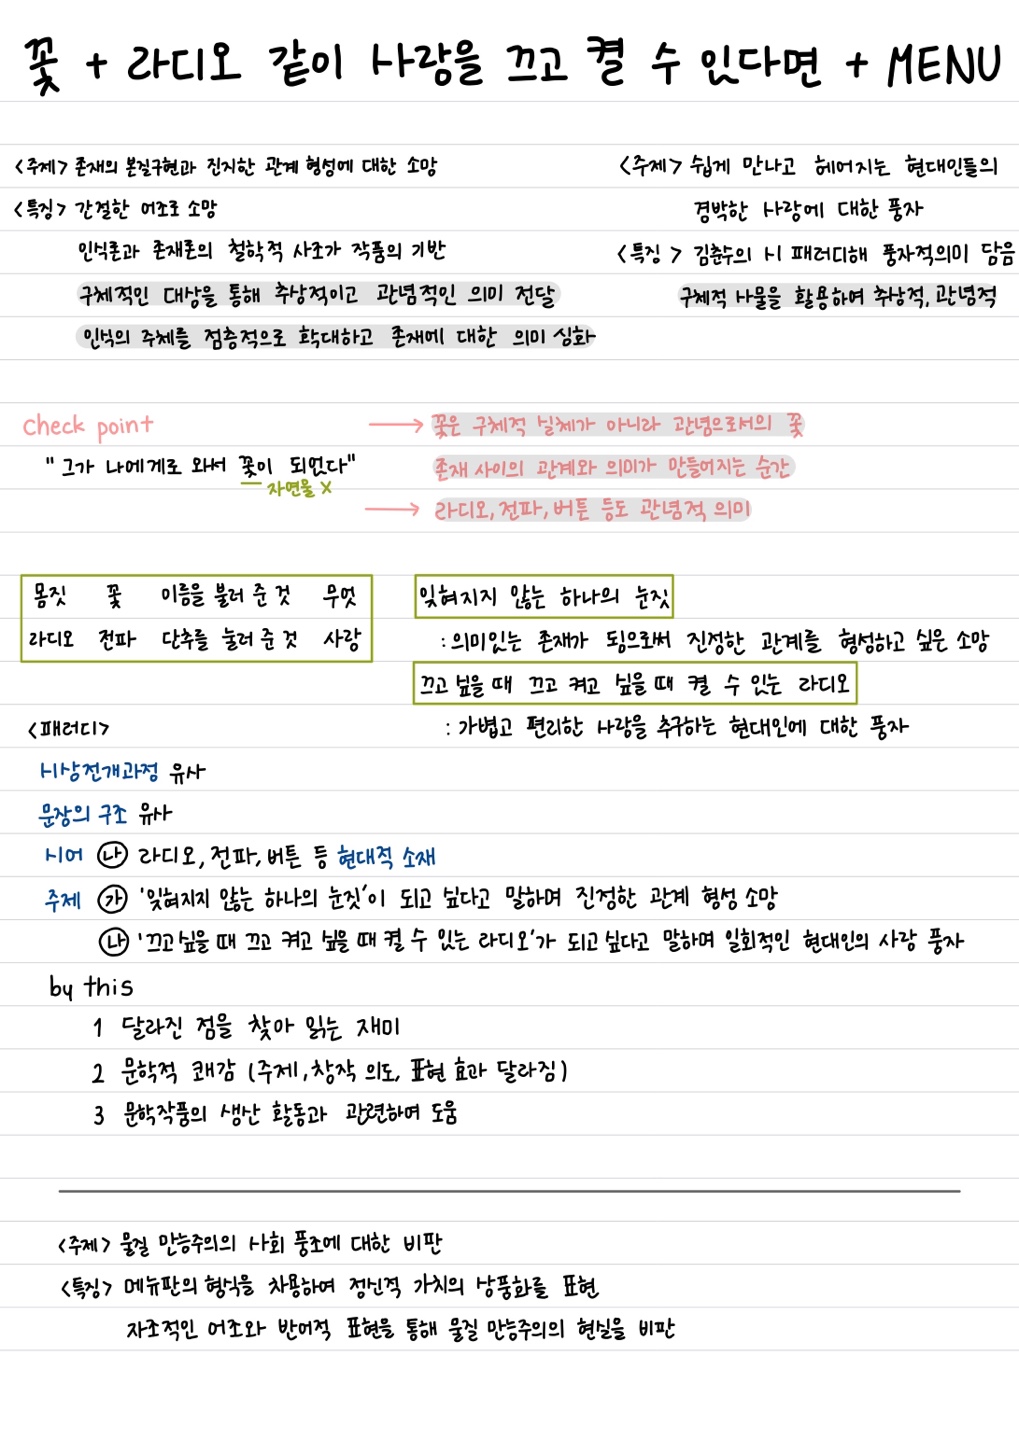 꽃 + 라디오 같이 사랑을 끄고 켤 수 있다면 + MENU
<주제> 존재의 본질구현과 진지한 관계 형성에 대한 소망
<특징> 간절한 어조로 소망
인식론과 존재론의 철학적 사조가 작품의 기반
구체적인 대상을 통해 추상적이고 관념적인 의미 전달
인식의 주체를 점층적으로 확대하고 존재에 대한 의미 심화
<주제> 쉽게 만나고 헤어지는 현대인들의
경박한 사랑에 대한 풍자
<특징> 김춘수의 시 패러디해 풍자적의미 담음
구체적 사물을 활용하여 추상적, 관념적
Check point
"그가 나에게로 와서 꽃이 되었다"
자연물 X
→ 꽃은 구체적 실체가 아니라 관념으로서의 꽃
존재 사이의 관계와 의미가 만들어지는 순간
→ 라디오, 전파, 버튼 등도 관념적 의미
몸짓 꽃 이름을 불러 준 것 무엇
라디오 전파 단추를 눌러 준 것 사랑
잊혀지지 않는 하나의 눈짓
: 의미있는 존재가 됨으로써 진정한 관계를 형성하고 싶은 소망
끄고 싶을 때 끄고 켜고 싶을 때 켤 수 있는 라디오
: 가볍고 편리한 사랑을 추구하는 현대인에 대한 풍자
<패러디>
시상전개과정 유사
문장의 구조 유사
시어 ㉯ 라디오, 전파, 버튼 등 현대적 소재
주제 ㉮ '잊혀지지 않는 하나의 눈짓'이 되고 싶다고 말하며 진정한 관계 형성 소망
㉯ '끄고 싶을 때 끄고 켜고 싶을 때 켤 수 있는 라디오'가 되고 싶다고 말하며 일회적인 현대인의 사랑 풍자
by this
1 달라진 점을 찾아 읽는 재미
2 문학적 쾌감 (주제, 창작 의도, 표현 효과 달라짐)
3 문학작품의 생산 활동과 관련하여 도움
<주제> 물질 만능주의의 사회 풍조에 대한 비판
<특징> 메뉴판의 형식을 차용하여 정신적 가치의 상품화를 표현
자조적인 어조와 반어적 표현을 통해 물질 만능주의의 현실을 비판